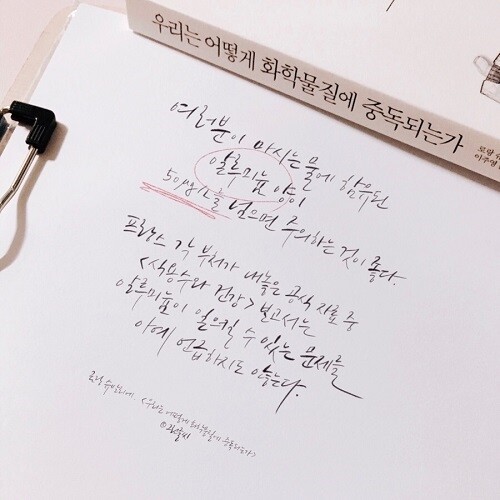 우리는 어떻게 화학물질에 중독되는가
로랑
이주영
여러분이 마시는 물에 함유된
알루미늄 양이
50μg/L를 넘으면 주의하는 것이 좋다.
프랑스 각 부처가 내놓은 공식 자료 중
<식용수와 건강> 보고서는
알루미늄이 일으킬 수 있는 문제를
아예 언급하지도 않는다.
로랑 슈발리에 <우리는 어떻게 화학물질에 중독되는가>